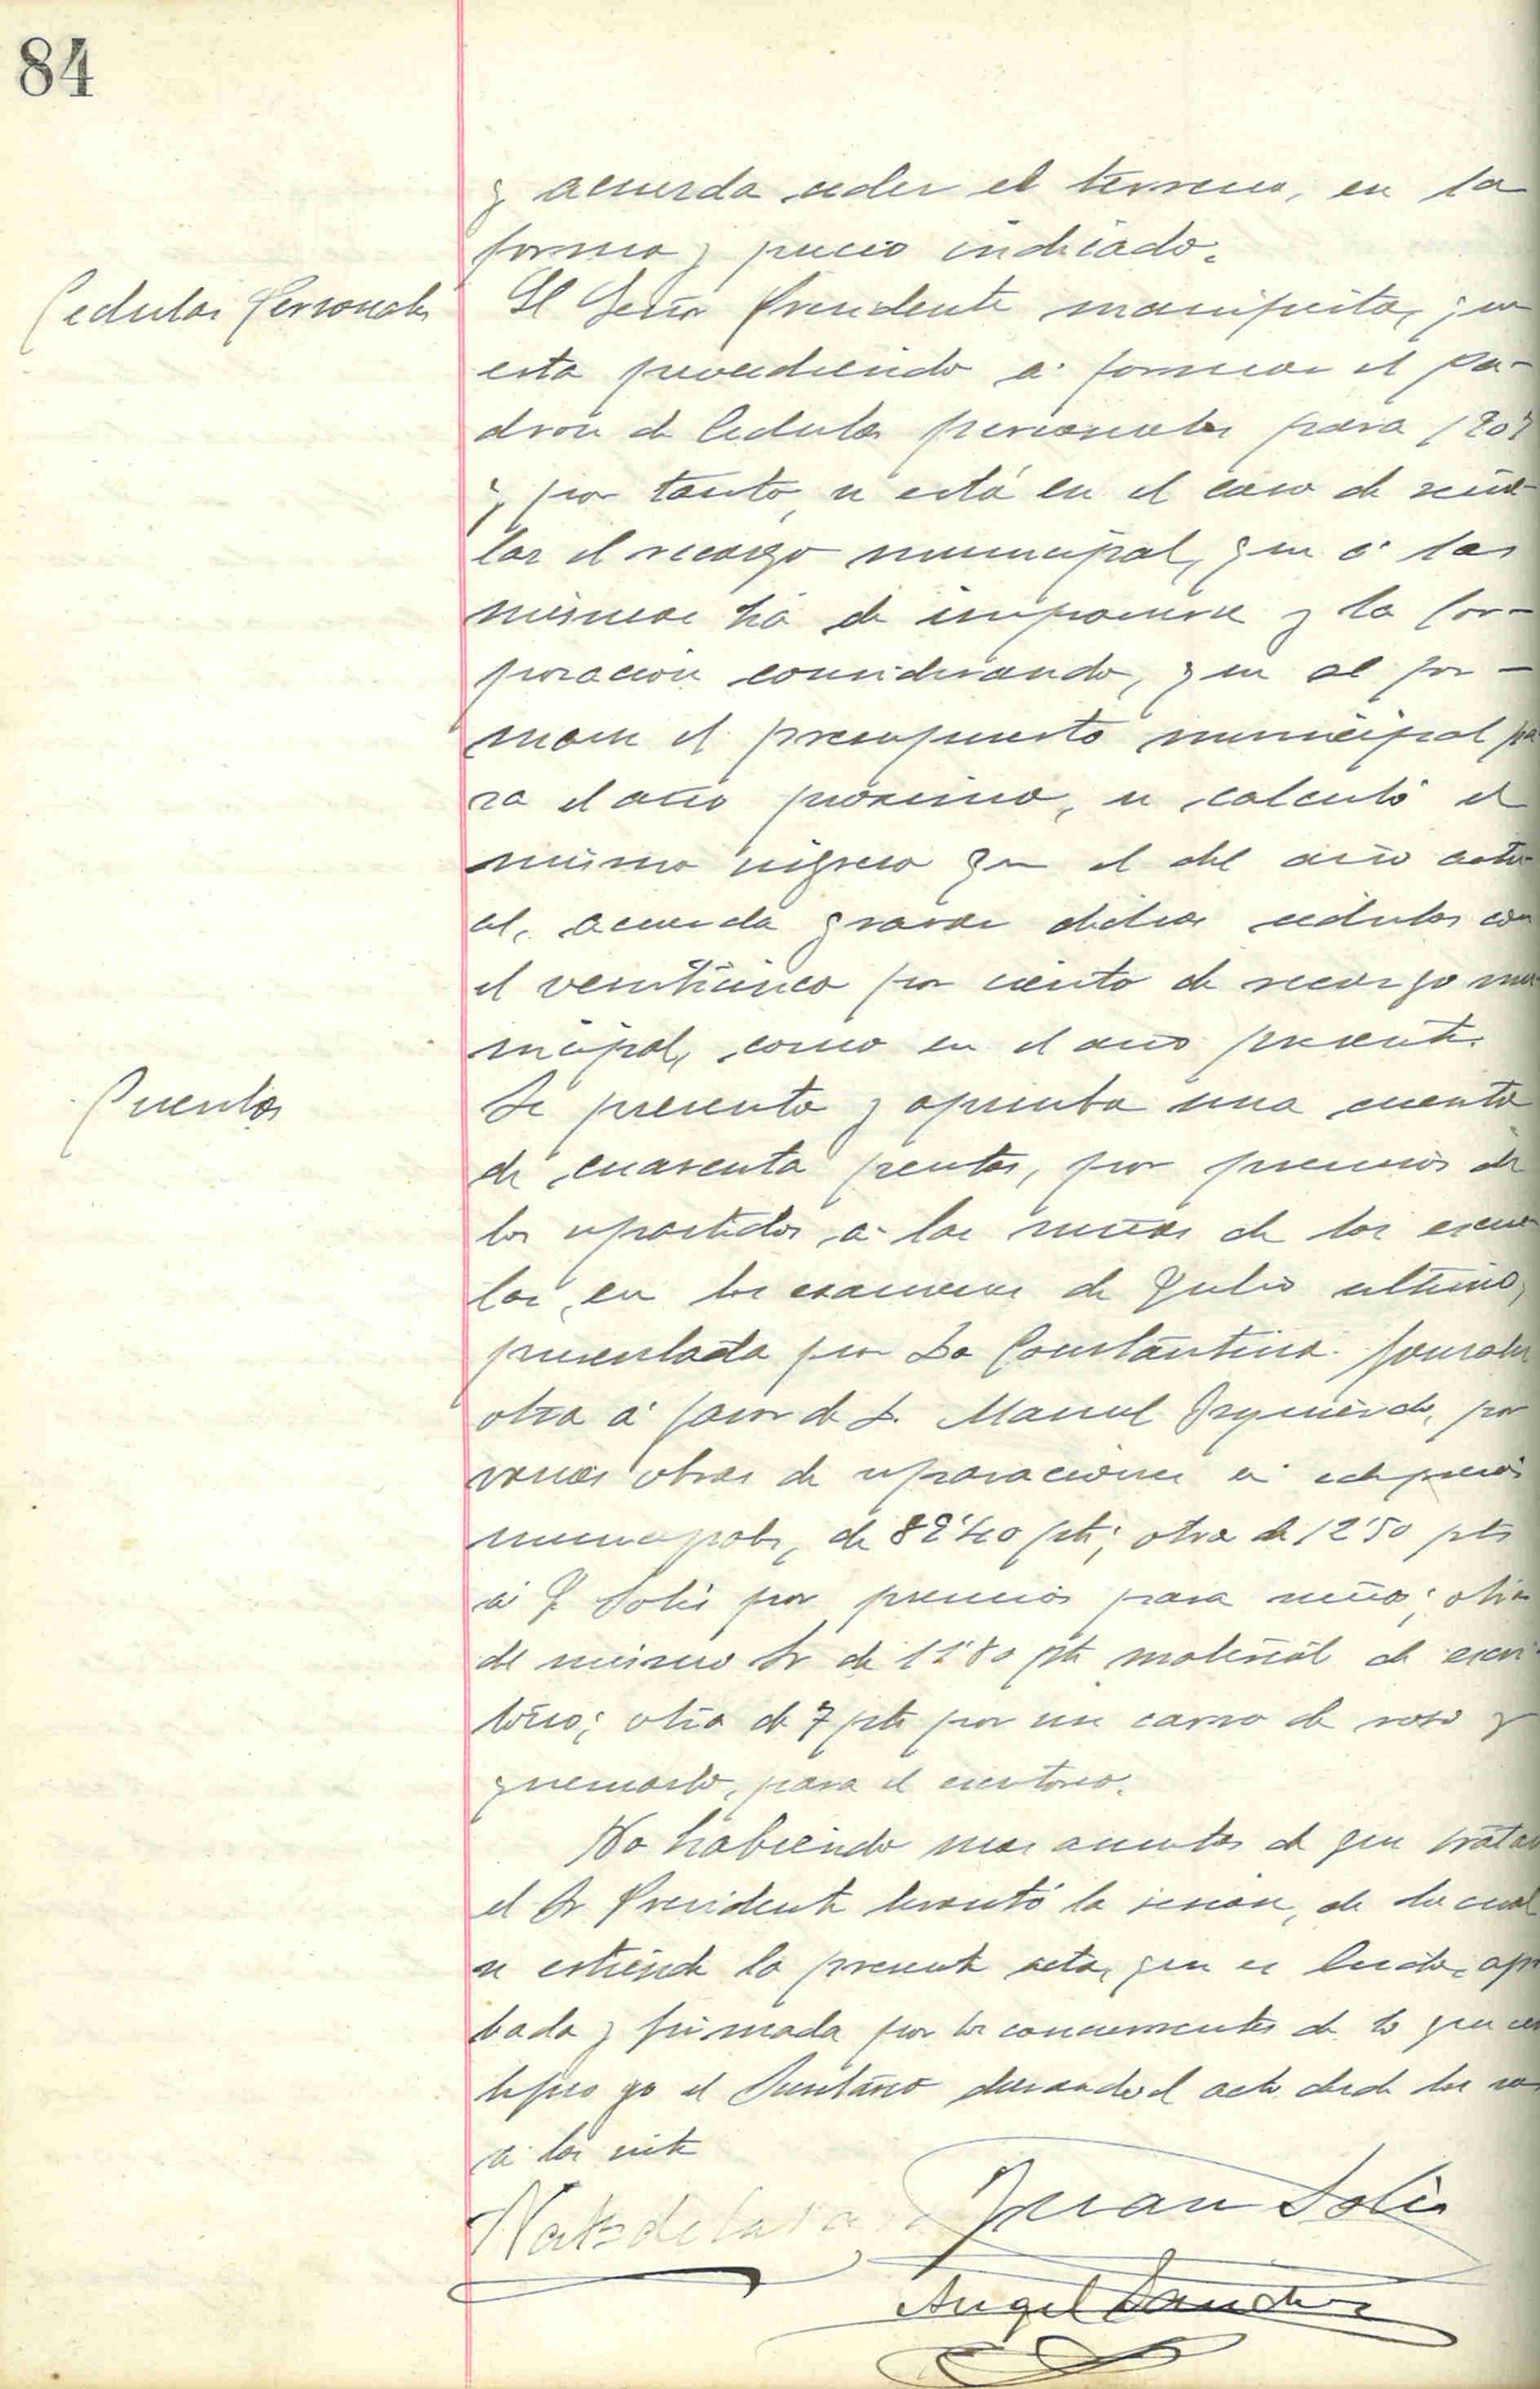 84
y acuerda ceder el terreno, en la
forma y precio indicado.
Cedulas Personales
El Señor Presidente manifiesta, que
esta procediendo a formar el pa-
dron de Cedulas personales para 190
y por tanto, se está en el caso de seña-
lar el recargo municipal, que á las
mismas há de imponerse y la Cor-
poracion considerando, que al for-
marse el presupuesto municipal pa
ra el año próximo, se calculó el
mismo ingreso que el del año actu-
al, acuerda gravar dichas cedulas con
el veinticinco por ciento de recargo mu
nicipal, como en el año presente.
Cuentas
Se presenta y aprueba una cuenta
de cuarenta pesetas, por premios de
los repartidos a las niñas de las escue
las, en los examenes de Julio ultimo,
presentada por Da Constantina Gonzalez
otra á favor de D. Manuel Izquierdo, por
varias obras de reparaciones en edificios
municipales, de pts; otra de 12'50 pts
á J. Solis por premios para niños; otra
del mismo Sr de pts material de escri
torio; otra de 7 pts por un carro de rozo y
quemarlo, para el escritorio.
No habiendo mas asuntos de que tratar
el Sr Presidente levantó la sesion, de la cual
se estiende la presente acta, que es leida, apro
bada y firmada por los concurrentes de lo que cer
tifico yo el Secretario durando el acto desde las
á las siete
Juan Solis
Angel Sanchez